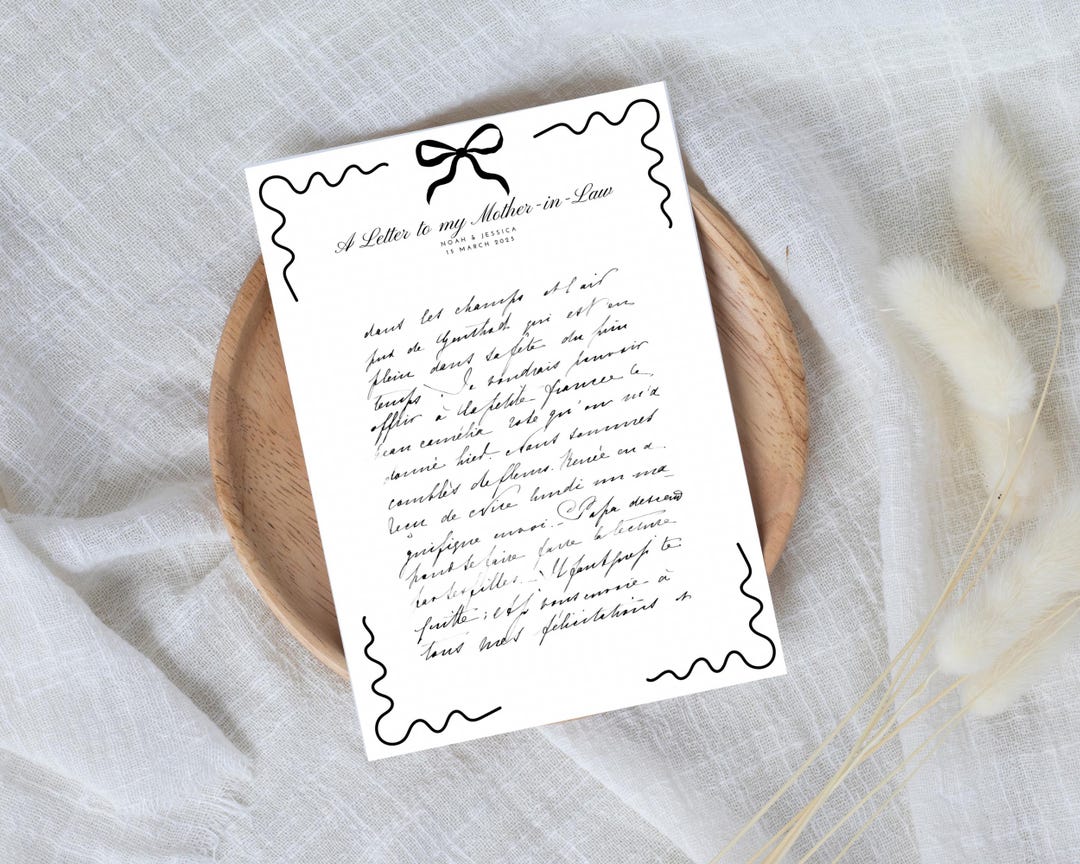 A Letter to my Mother-in-Law
NOAH & JESSICA
15 MARCH 2025
dans les champs et l'air
pur de qui est en
plein dans sa fête du
temps. Je voudrais pouvoir
offrir à la petite fiancée le
beau camélia rose qu'on m'a
donné hier. Nous sommes
comblés de fleurs. Renée en a
reçu de lundi un ma-
gnifique envoi. Papa descend
faire la lecture
filles. Il faut
quitter; et vous envoie à
tous mes félicitations et